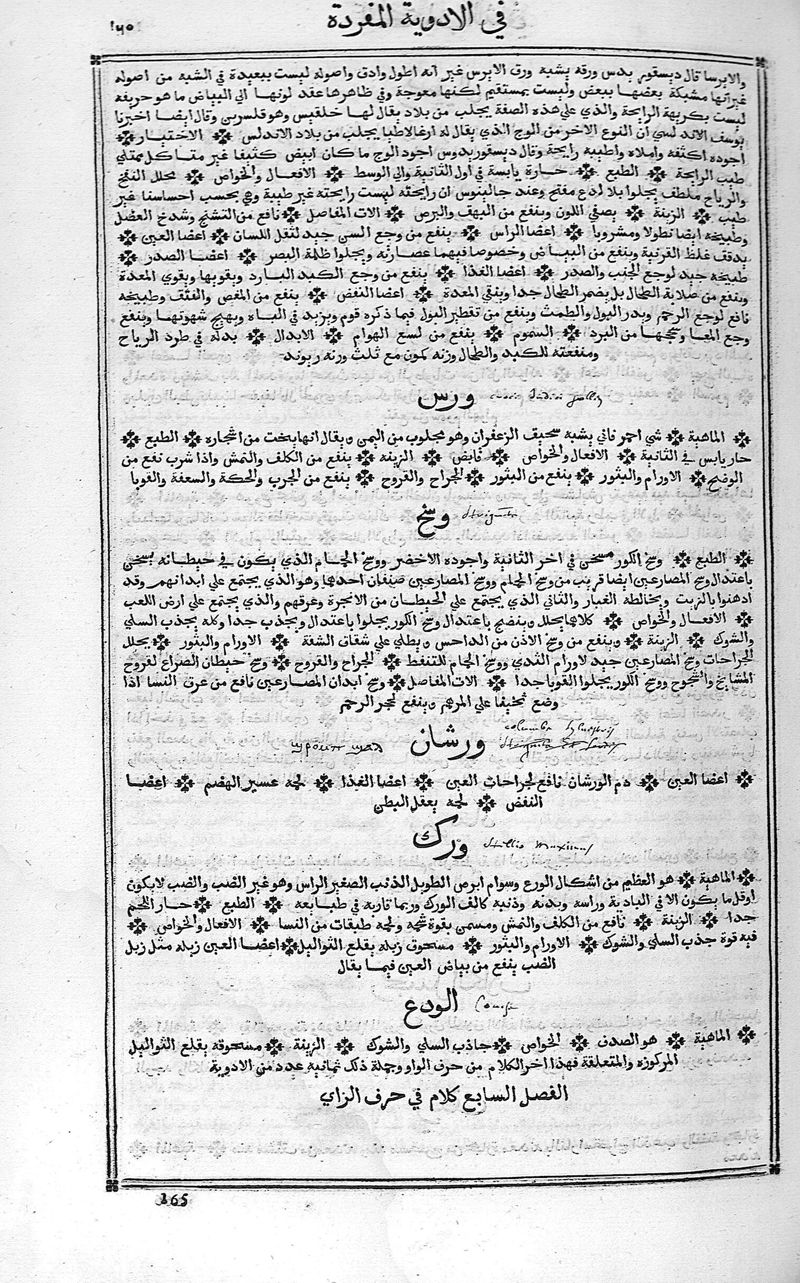 في الادوية المفردة
١٦٥
والايرسا قال ديسقوريدس ورقه يشبه ورق الايرس غير انه اطول وادق واصوله ليست ببعيدة في الشبه من اصوله
غير انها مشبكة بعضها ببعض وليست بمستقيم لكنها معوجة وفي ظاهرها عقد لونها الي البياض ما هو حريفه
ليست بكريهة الرايحة والذي علي هذه الصفة يجلب من بلاد يقال لها خلقيس وهو قلسرين وقال ايضا اخبرنا
يوسف الاندلسي ان النوع الاخر من الوج الذي يقال له ارغالاطيا يجلب من بلاد الاندلس ❈ الاختيار ❈
اجوده اكثفه واملاه واطيبه رايحة وقال ديسقوريدوس اجود الوج ما كان ابيض كثيفا غير متاكل ممتلي
طيب الرايحة ❈ الطبع ❈ حارة يابسة في اول الثانية والي الوسط ❈ الافعال والخواص ❈ يحلل النفخ
والرياح ملطف يجلوا بلا لدع مفتح وعند جالينوس ان رايحته ليست رايحته غير طيبة وهي بحسب احساسنا غير
طيب ❈ الزينة ❈ يصفي اللون وينفع من البهف والبرص ❈ الات المفاصل ❈ نافع من التشنج وشدخ العضل
وطبيخه ايضا نطولا ومشروبا ❈ اعضا الراس ❈ ينفع من وجع السن جيد لثقل اللسان ❈ اعضا العين ❈
يدقف غلظ القرنية وينفع من البياض وخصوصا فيهما عصارته ويجلوا ظلمة البصر ❈ اعضا الصدر ❈
طبيخه جيد لوجع الجنب والصدر ❈ اعضا الغذا ❈ ينفع من وجع الكبد البارد ويقويها ويقوي المعدة
وينفع من صلابة الطحال بل يضمر الطحال جدا وينقي المعدة ❈ اعضا النفض ❈ ينفع من المغص والفتق وطبيخه
نافع لوجع الرحم ويدر البول والطمث وينفع من تقطير البول فيما ذكره قوم ويزيد في الباه ويهيج شهوتهما وينفع
وجع المعا وسحجها من البرد ❈ السموم ❈ ينفع من لسع الهوام ❈ الابدال ❈ بدله في طرد الرياح
ومنفعته للكبد والطحال وزنه كمون مع ثلث وزنه ريوند
ورس
❈ الماهية ❈ شي احمر قاني يشبه سحيف الزعفران وهو مجلوب من اليمن ويقال انها ينحت من اشجاره ❈ الطبع ❈
حار يابس في الثانية ❈ الافعال والخواص ❈ قابض ❈ الزينه ❈ ينفع من الكلف والنمش واذا شرب نفع من
الوضح ❈ الاورام والبثور ❈ ينفع من البثور ❈ الجراح والقروح ❈ ينفع من الجرب والحكة والسعفة والقوبا
وسخ
❈ الطبع ❈ وسخ الكور مسخن في اخر الثانية واجوده الاخضر ووسخ الحمام الذي يكون في حيطانه يسخن
باعتدال وسخ المصارعين ايضا قريب من وسخ الحمام ووسخ المصارعين صنفان احدهما وهو الذي يجتمع علي ابدانهم وقد
ادهنوا بالزيت ويخالطه الغبار والثاني الذي يجتمع علي الحيطان من الابخرة وعرقهم والذي يجتمع علي ارض اللعب
❈ الافعال والخواص ❈ كلاهما يحلل وينضج باعتدال وسخ الكور يجلوا باعتدال ويجذب جدا وكله يجذب السلي
والشوك ❈ الزينة ❈ وينفع من وسخ الاذن من الداحس ويطلي علي شقاق الشفة ❈ الاورام والبثور ❈ يحلل
الجراحات وسخ المصارعين جيد لاورام الثدي ووسخ الحمام للتنفط ❈ الجراح والقروح ❈ وسخ حيطان الصراع لقروح
المشايخ والشجوح ووسخ الكور يجلوا القوبا جدا ❈ الات المفاصل ❈ وسخ ابدان المصارعين نافع من عرق النسا اذا
وضع تخفيفا علي المرهم وينفع لحجر الرحم
ورشان columba sylvestris
❈ اعضا العين ❈ دم الورشان نافع لجراحات العين ❈ اعضا الغذا ❈ لحمه عسير الهضم ❈ اعضا
النفض ❈ لحمه يعقل البطن
ورك Stellio maximus
❈ الماهية ❈ هو العظيم من اشكال الوزع وسوام ابرص الطويل الذنب الصغير الراس وهو غير الضب والضب لا يكون
او قل ما يكون الا في البادية وراسه وبدنه وذنبه كالف الورك وربما تاربه في طبايعه ❈ الطبع ❈ حار اللحم
جدا ❈ الزينة ❈ نافع من الكلف والنمش ومسمن بقوة شحمه ولحمه طبقات من النسا ❈ الافعال والخواص ❈
فيه قوة جذب السلي والشوك ❈ الاورام والبثور ❈ مسحوق زبله يقلع التواليل ❈ اعضا العين زبله مثل زبل
الضب ينفع من بياض العين فيما يقال
الودع
❈ الماهية ❈ هو الصدف ❈ الخواص ❈ جاذب السلي والشوك ❈ الزينة ❈ مسحوقه يقلع التواليل
المركوزه والمتعلقة فهذا اخر الكلام من حرف الواو وجملة ذلك ثمانية عدد من الادوية
الفصل السابع كلام في حرف الزاي
165